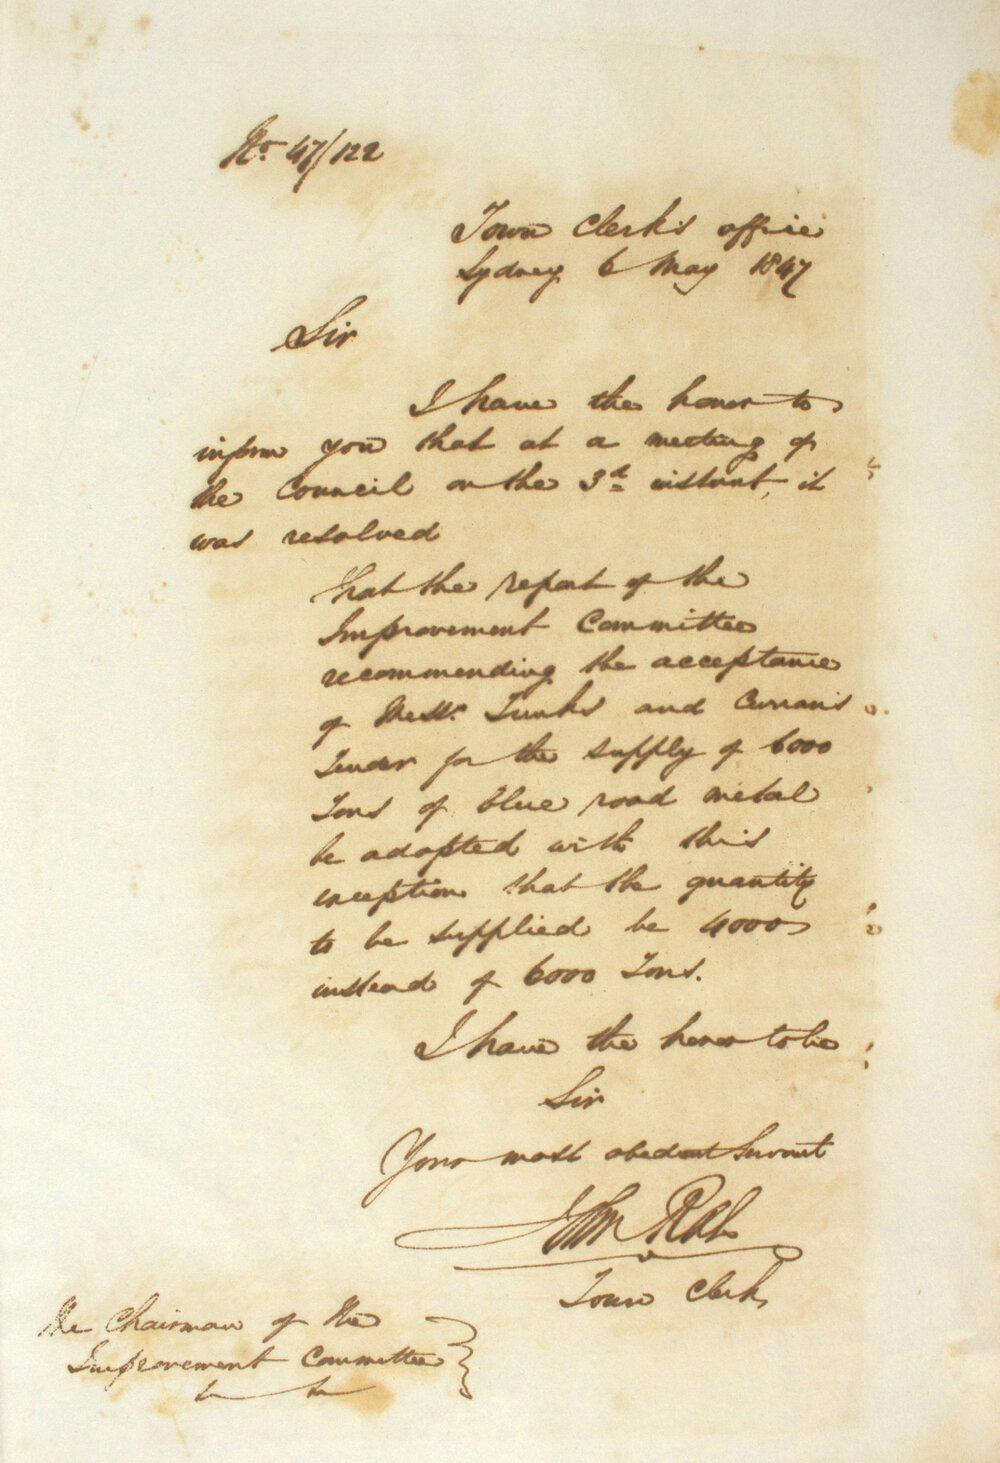 No. 47/122
Town Clerk's office
Sydney 6 May 1847
Sir
I have the honor to
inform you that at a meeting of
the Council on the 3d instant, it
was resolved
That the report of the
Improvement Committee
recommending the acceptance
of Messrs. Tunks and Curran's
Tender for the supply of 6000
Tons of blue road metal
be adopted with this
exception that the quantity
to be supplied be 4000
instead of 6000 Tons.
I have the honor to be
Sir
Your most obedient Servant
John Rae
Town Clerk
The Chairman of the
Improvement Committee